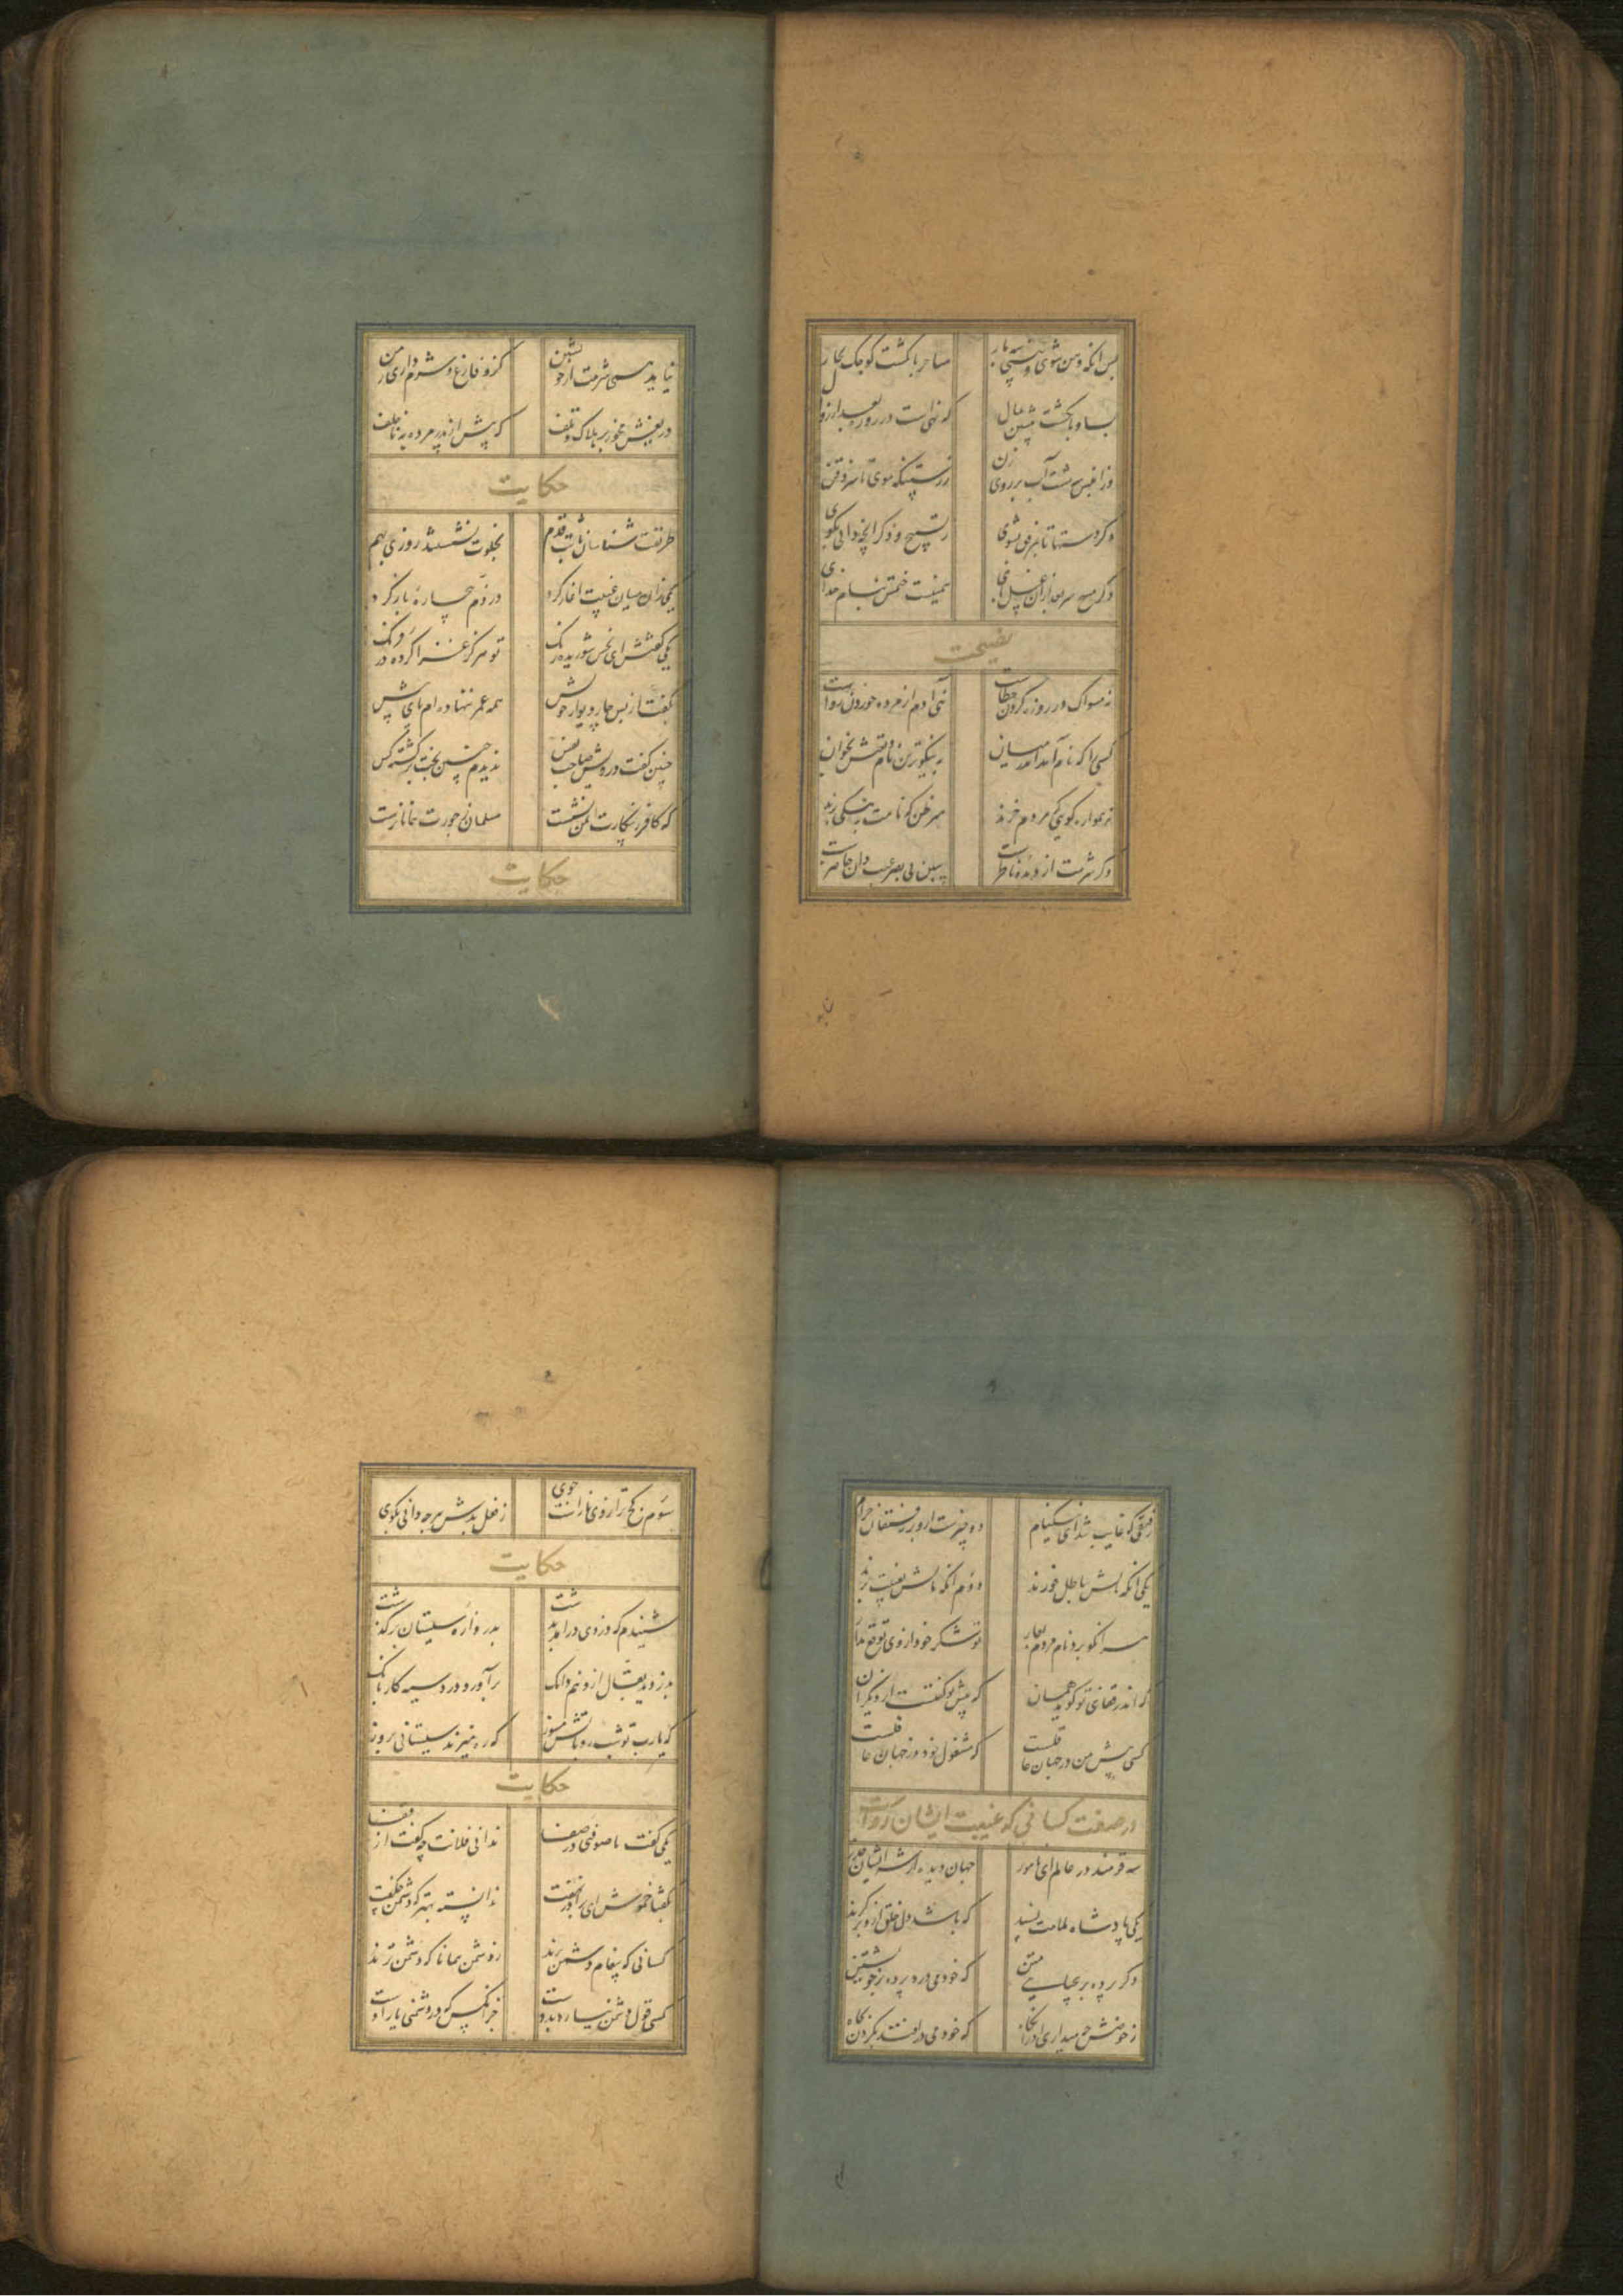 پس انکه دهن شوی و بینی سه بار
مناخر بانکشت کوچک بخار
بسبابه دندان پیشین بمال
که نهی است در روزه بعد از زوال
وزان پس سه مشت آب بر روی زن
ز رستنکه موی سر تا ذقن
دکر دستها تا بمرفق بشوی
ز تسبیح و ذکر انچه دانی بکوی
دکر مسح سر بعد ازان غسل پای
همینست ختمش بنام خدای
نصیحت
نه مسواک در روزه کردن خطاست
بنی آدم مرده خوردن رواست
کسی را که نام آمد اندر میان
به نیکوترین نام و نعتش بخوان
چو همواره کویی که مردم خرند
مبر ظن که نامت به نیکی برند
وکر شرمت از دیده ناظرست
ببین بی بصر غیب دان حاضرست
نیاید همی شرمت از خویشتن
کزو فارغ و شرم داری ز من
که پیش از پدر مرده به ناخلف
حکایت
طریقت شناسان ثابت قدم
بخلوت نشستند روزی بهم
یکی زان میان غیبت اغاز کرد
در ذم بیچاره باز کرد
یکی کفتش ای یار شوریده رنک
تو هرکز غزا کرده در فرنک
بکفت از پس چار دیوار خویش
همه عمر ننهاده ام پای پیش
چنین کفت درویش صاحب نفس
ندیدم چنین بخت برکشته کس
که کافر ز پیکارت ایمن نشست
مسلمان ز جورت نه آنانرست
حکایت
رفیقی که غایب شد ای نیکنام
دو چیزست ازو بر رفیقان حرام
یکی انکه مالش بباطل خورند
دوم انکه نامش بغیبت برند
هر انکو برد نام مردم بعار
تو خیر خود از وی توقع مدار
که اندر قفای تو کوید همان
که پیش تو کفتست از دیکران
کسی پیش من در جهان عاقلست
که مشغول خود وز جهان غافلست
در صفت کسانی که غیبت ایشان رواست
یکی پادشاه ملامت پسند
که خود می درد پرده خویشتن
که خود می درافتد بکردن بچاه
سوم کج ترازوی ناراست خوی
ز فعل بدش هرچه دانی بکوی
حکایت
شنیدم که دزدی درامد ز دشت
بدروازه سیستان برکذشت
بدزدید بقال ازو نیم دانک
برآورد دزد سیه کار بانک
که یارب تو شبرو باتش مسوز
که ره میزند سیستانی بروز
حکایت
یکی کفت با صوفی در صفا
ندانی فلانت چه کفت از قفا
بکفتا خموش ای برادر بخفت
ندانسته بهتر که دشمن چکفت
کسانی که پیغام دشمن برند
ز دشمن همانا که دشمن ترند
کسی قول دشمن نیارد بدوست
جز انکس که در دشمنی یار اوست